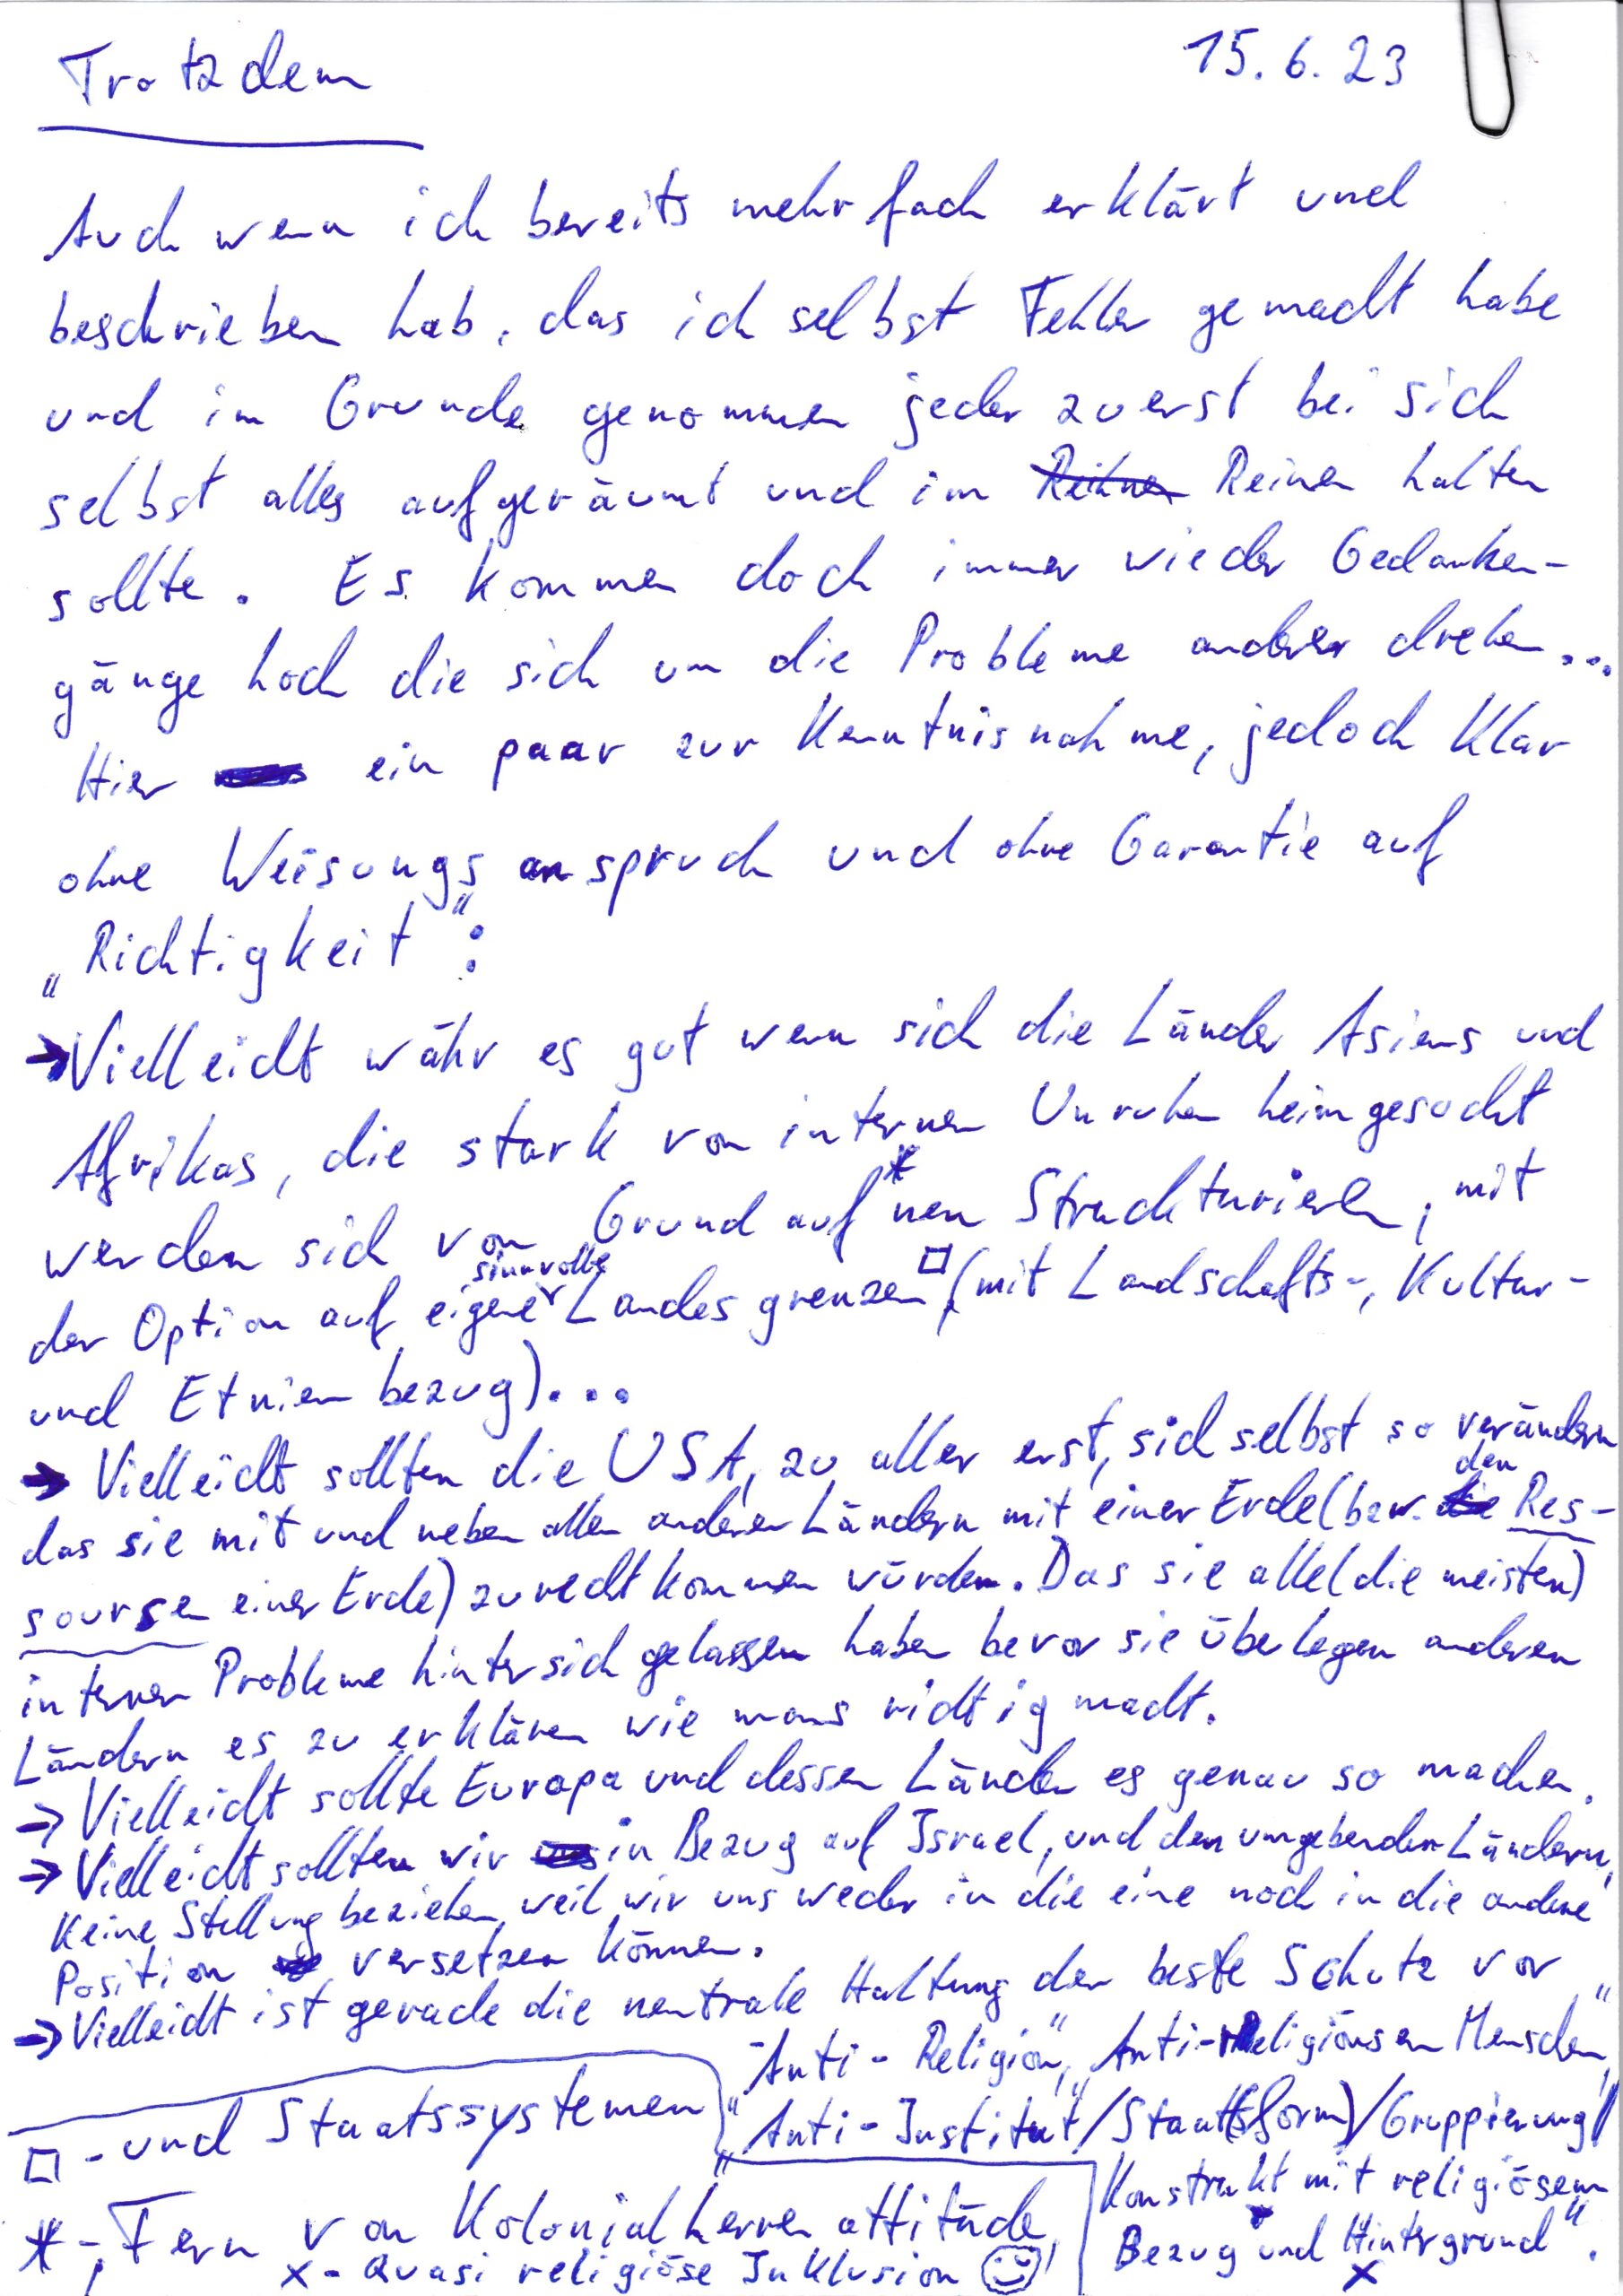 Trotzdem 15.6.23
Auch wenn ich bereits mehrfach erklärt und
beschrieben hab, das ich selbst Fehler gemacht habe
und im Grunde genommen jeder zuerst bei sich
selbst alles aufgeräumt und im Reinen halten
sollte. Es kommen doch immer wieder Gedanken-
gänge hoch die sich um die Probleme anderer drehen...
Hier ein paar zur Kenntnisnahme, jedoch klar
ohne Weisungsanspruch und ohne Garantie auf
„Richtigkeit":
→ Vielleicht währ es gut wenn sich die Länder Asiens und
Afrikas, die stark von internen Unruhen heimgesucht
werden sich von Grund auf * neu Struckturieren, mit
der Option auf eigene sinnvolle Landesgrenzen □ (mit Landschafts-, Kultur-
und Etnienbezug)...
→ Vielleicht sollten die USA, zu aller erst, sich selbst so verändern
das sie mit und neben allen anderen Ländern mit einer Erde (bzw. den Res-
soursen einer Erde) zurecht kommen würden. Das sie alle (die meisten)
internen Probleme hintersich gelassen haben bevor sie überlegen anderen
Ländern es zu erklären wie mans richtig macht.
→ Vielleicht sollte Europa und dessen Länder es genau so machen.
→ Vielleicht sollten wir in Bezug auf Israel, und den umgebenden Ländern,
keine Stellung beziehen, weil wir uns weder in die eine noch in die andere
Position versetzen können.
→ Vielleicht ist gerade die neutrale Haltung der beste Schutz vor
„Anti-Religion", „Anti-Religiösen Menschen",
„Anti-Institut/Staat(sform)/Gruppierung/
Konstrukt mit religiösem
Bezug und Hintergrund". x
□ - und Staatssystemen
* - Fern von Kolonialherrenattitüde
x - Quasi religiöse Inklusion